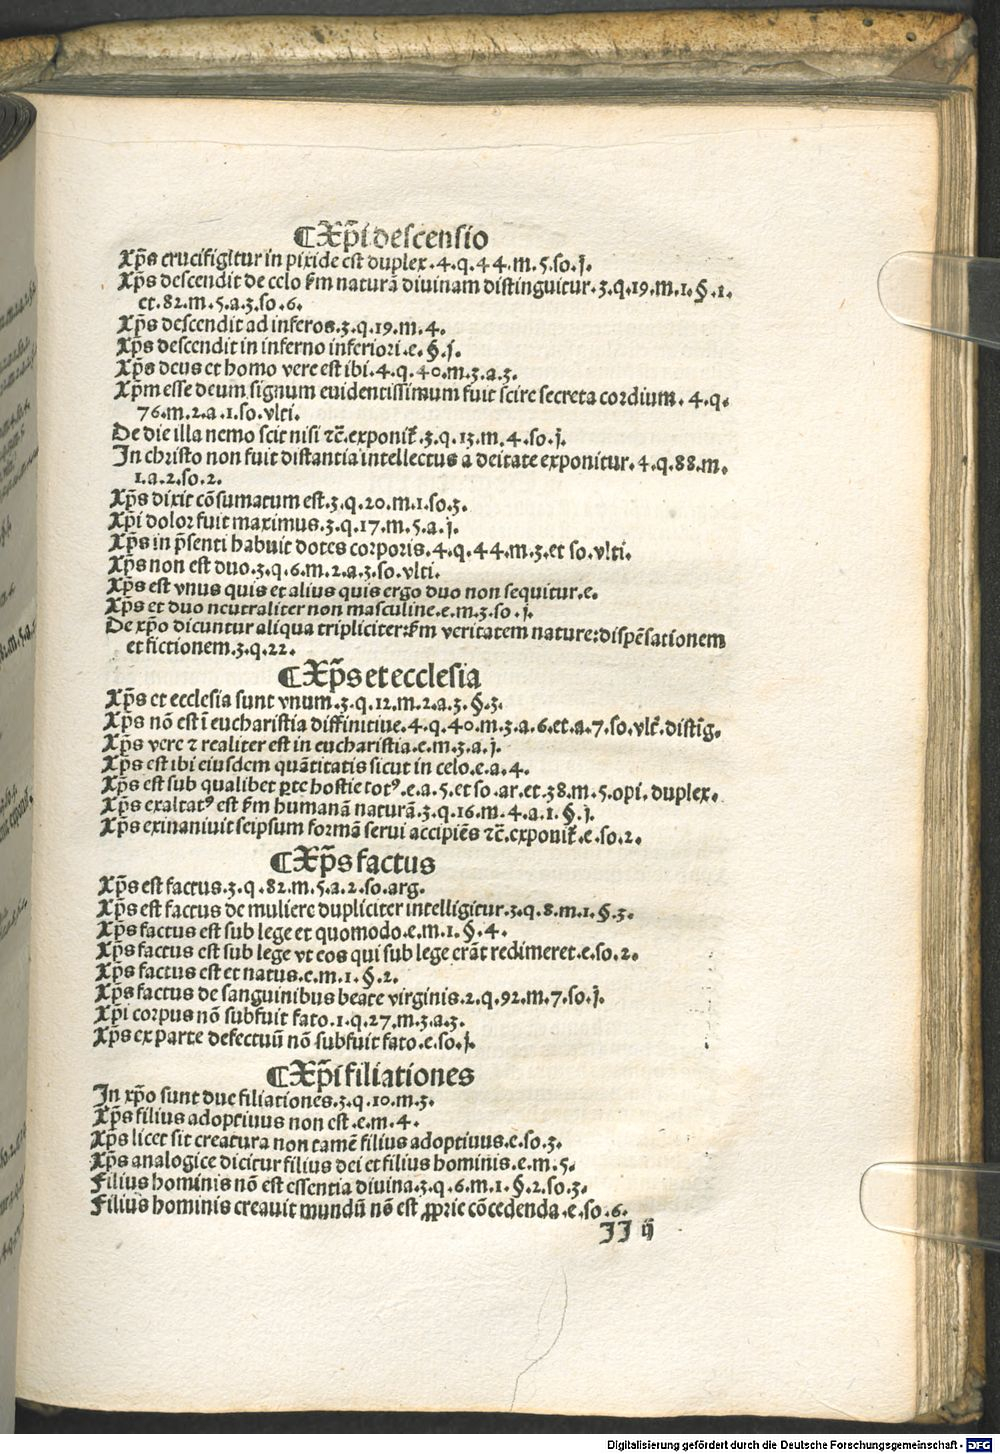 ¶ Xp̄i descensio
Xp̄s crucifigitur in pixide est duplex.4.q.44.m.5.so.j.
Xp̄s descendit de celo ẜm naturā divinam distinguitur.3.q.19.m.1.§.1.
et.82.m.5.a.3.so.6.
Xp̄s descendit ad inferos.3.q.19.m.4.
Xp̄s descendit in inferno inferiori.e.§.j.
Xp̄s deus et homo vere est ibi.4.q.40.m.3.a.3.
Xp̄m esse deum signum evidentissimum fuit scire secreta cordium.4.q.
76.m.2.a.1.so.vlti.
De die illa nemo scit nisi ⁊c̄.exponit̄.3.q.13.m.4.so.j.
In christo non fuit distantia intellectus a deitate exponitur.4.q.88.m.
1.a.2.so.2.
Xp̄s dixit cōsumatum est.3.q.20.m.1.so.3.
Xp̄i dolor fuit maximus.3.q.17.m.5.a.j.
Xp̄s in p̄senti habuit dotes corporis.4.q.44.m.3.et so.vlti.
Xp̄s non est duo.3.q.6.m.2.a.3.so.vlti.
Xp̄s est vnus quis et alius quis ergo duo non sequitur.e.
Xp̄s et duo neutraliter non masculine.e.m.3.so.j.
De xp̄o dicuntur aliqua tripliciter:ẜm veritatem nature:dispēsationem
et fictionem.3.q.22.
¶ Xp̄s et ecclesia
Xp̄s et ecclesia sunt vnum.3.q.12.m.2.a.3.§.3.
Xp̄s nō est ī eucharistia diffinitive.4.q.40.m.3.a.6.et.a.7.so.vlt̄.distīg.
Xp̄s vere ⁊ realiter est in eucharistia.e.m.3.a.j.
Xp̄s est ibi eiusdem quātitatis sicut in celo.e.a.4.
Xp̄s est sub qualibet ꝑte hostie totꝰ.e.a.5.et so.ar.et.38.m.5.opi.duplex.
Xp̄s exaltatꝰ est ẜm humanā naturā.3.q.16.m.4.a.1.§.j.
Xp̄s exinanivit seipsum formā servi accipiēs ⁊c̄.exponit̄.e.so.2.
¶ Xp̄s factus
Xp̄s est factus.3.q.82.m.5.a.2.so.arg.
Xp̄s est factus de muliere dupliciter intelligitur.3.q.8.m.1.§.3.
Xp̄s factus est sub lege et quomodo.e.m.1.§.4.
Xp̄s factus est sub lege vt eos qui sub lege erāt redimeret.e.so.2.
Xp̄s factus est et natus.e.m.1.§.2.
Xp̄s factus de sanguinibus beate virginis.2.q.92.m.7.so.j.
Xp̄i corpus nō subfuit fato.1.q.27.m.3.a.3.
Xp̄s ex parte defectuū nō subfuit fato.e.so.j.
¶ Xp̄i filiationes
In xp̄o sunt due filiationes.3.q.10.m.3.
Xp̄s filius adoptivus non est.e.m.4.
Xp̄s licet sit creatura non tamē filius adoptivus.e.so.3.
Xp̄s analogice dicitur filius dei et filius hominis.e.m.5.
Filius hominis nō est essentia divina.3.q.6.m.1.§.2.so.3.
Filius hominis creavit mundū nō est ꝓprie cōcedenda.e.so.6.
II ij
Digitalisierung gefördert durch die Deutsche Forschungsgemeinschaft - DFG